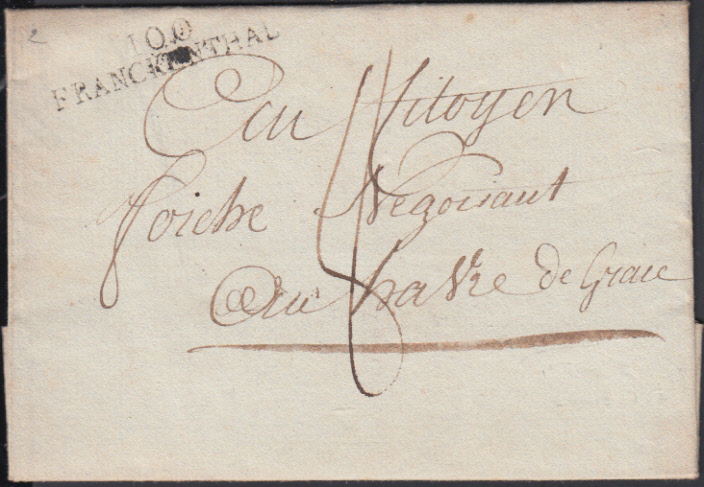 2
100
FRANCKENTHAL
au Citoyen
foiche Negotiant
au havre de Grace